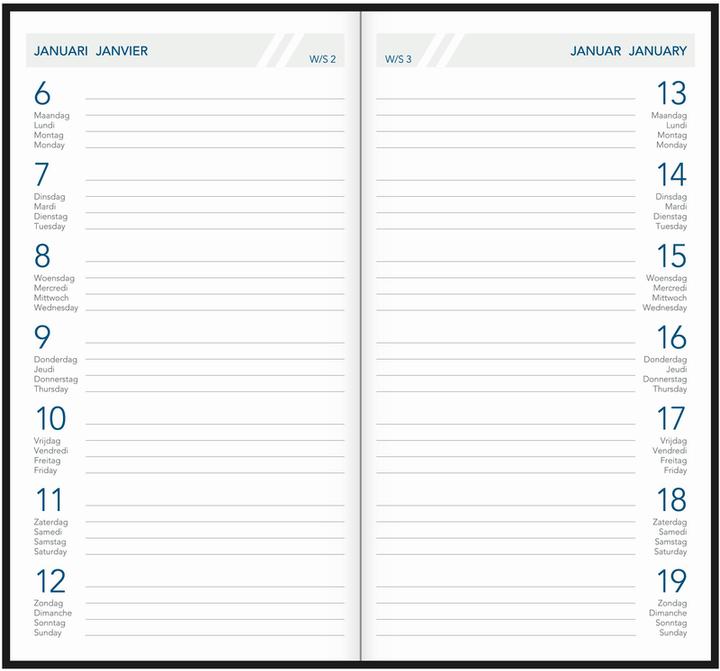 JANUARI JANVIER
W/S 2
6
Maandag
Lundi
Montag
Monday
7
Dinsdag
Mardi
Dienstag
Tuesday
8
Woensdag
Mercredi
Mittwoch
Wednesday
9
Donderdag
Jeudi
Donnerstag
Thursday
10
Vrijdag
Vendredi
Freitag
Friday
11
Zaterdag
Samedi
Samstag
Saturday
12
Zondag
Dimanche
Sonntag
Sunday
W/S 3
JANUAR JANUARY
13
Maandag
Lundi
Montag
Monday
14
Dinsdag
Mardi
Dienstag
Tuesday
15
Woensdag
Mercredi
Mittwoch
Wednesday
16
Donderdag
Jeudi
Donnerstag
Thursday
17
Vrijdag
Vendredi
Freitag
Friday
18
Zaterdag
Samedi
Samstag
Saturday
19
Zondag
Dimanche
Sonntag
Sunday